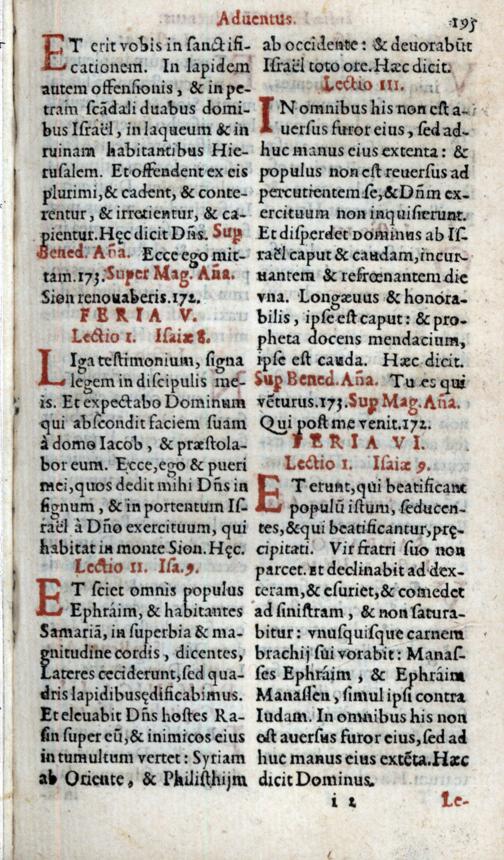 Aduentus. 195
ET erit vobis in sanctifi-
cationem. In lapidem
autem offensionis, & in pe-
tram scãdali duabus domi-
bus Israël, in laqueum & in
ruinam habitantibus Hie-
rusalem. Et offendent ex eis
plurimi, & cadent, & conte-
rentur, & irretientur, & ca-
pientur. Hęc dicit Dñs. Sup
Bened. Aña. Ecce ego mit-
tam. 173. Super Mag. Aña.
Sion renouaberis. 172.
FERIA V.
Lectio I. Isaiæ 8.
LIga testimonium, signa
legem in discipulis me-
is. Et expectabo Dominum
qui abscondit faciem suam
à domo Iacob, & præstola-
bor eum. Ecce, ego & pueri
mei, quos dedit mihi Dñs in
signum, & in portentum Is-
raël à Dño exercituum, qui
habitat in monte Sion. Hęc.
Lectio II. Isa. 9.
ET sciet omnis populus
Ephráim, & habitantes
Samariã, in superbia & ma-
gnitudine cordis, dicentes,
Lateres ceciderunt, sed qua-
dris lapidibus ędificabimus.
Et eleuabit Dñs hostes Ra-
sin super eũ, & inimicos eius
in tumultum vertet: Syriam
ab Oriente, & Philisthijm
ab occidente: & deuorabũt
Israël toto ore. Hæc dicit.
Lectio III.
IN omnibus his non est a-
uersus furor eius, sed ad-
huc manus eius extenta: &
populus non est reuersus ad
percutientem se, & Dñm ex-
ercituum non inquisierunt.
Et disperdet Dominus ab Is-
raël caput & caudam, incur-
uantem & refrœnantem die
vna. Longæuus & honora-
bilis, ipse est caput: & pro-
pheta docens mendacium,
ipse est cauda. Hæc dicit.
Sup Bened. Aña. Tu es qui
vẽturus. 173. Sup Mag. Aña.
Qui post me venit. 172.
FERIA VI.
Lectio I. Isaiæ 9.
ET erunt, qui beatificant
populũ istum, seducen-
tes, & qui beatificantur, prę-
cipitati. Vir fratri suo non
parcet. Et declinabit ad dex-
teram, & esuriet, & comedet
ad sinistram, & non satura-
bitur: vnusquisque carnem
brachij sui vorabit: Manas-
ses Ephráim, & Ephráim
Manassen, simul ipsi contra
Iudam. In omnibus his non
est auersus furor eius, sed ad
huc manus eius extẽta. Hæc
dicit Dominus.
i 2 Le-